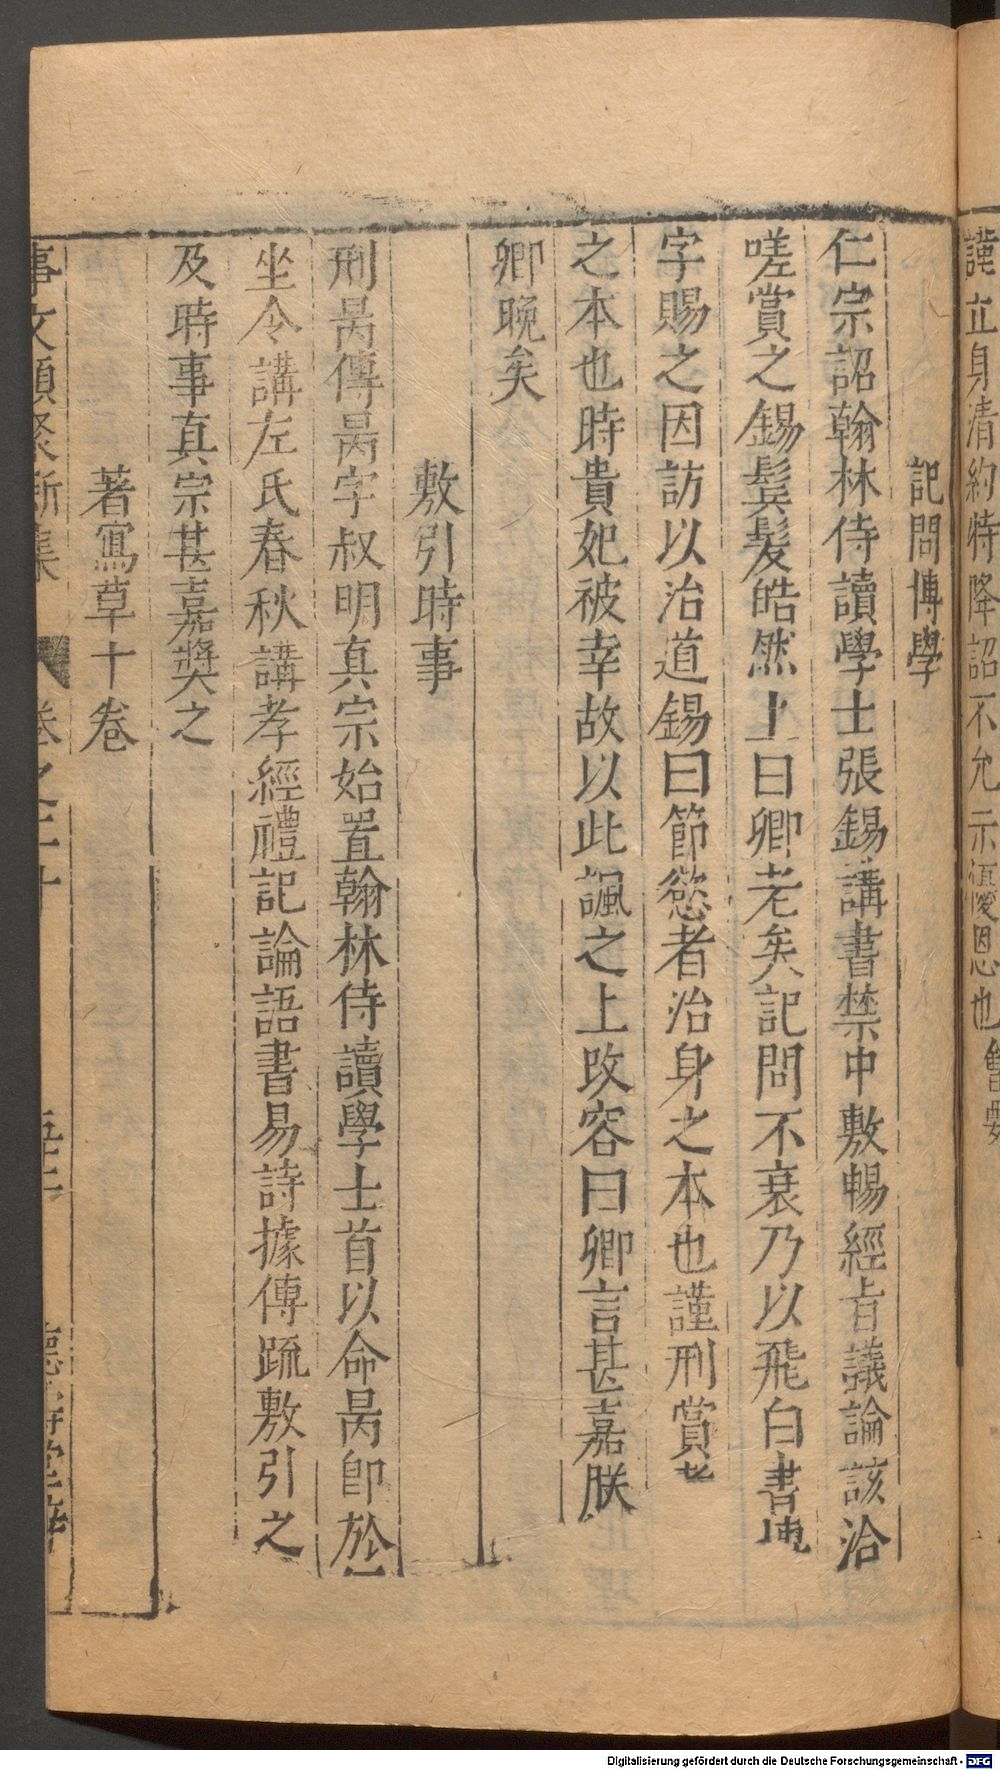 謹立身清約特降詔不允示優恩也
記問博學
仁宗詔翰林侍讀學士張錫講書禁中敷暢經旨議論該洽
嗟賞之錫鬂髮皓然上曰卿老矣記問不衰乃以飛白書
字賜之因訪以治道錫曰節慾者治身之本也謹刑賞者
之本也時貴妃被幸故以此諷之上改容曰卿言甚嘉朕
卿晚矣
敷引時事
刑昺傳昺字叔明真宗始置翰林侍讀學士首以命昺卽於
坐令講左氏春秋講孝經禮記論語書易詩據傳疏敷引之
及時事真宗甚嘉奬之
著寫草十卷
事文類聚新集 卷之二十
Digitalisierung gefördert durch die Deutsche Forschungsgemeinschaft - DFG